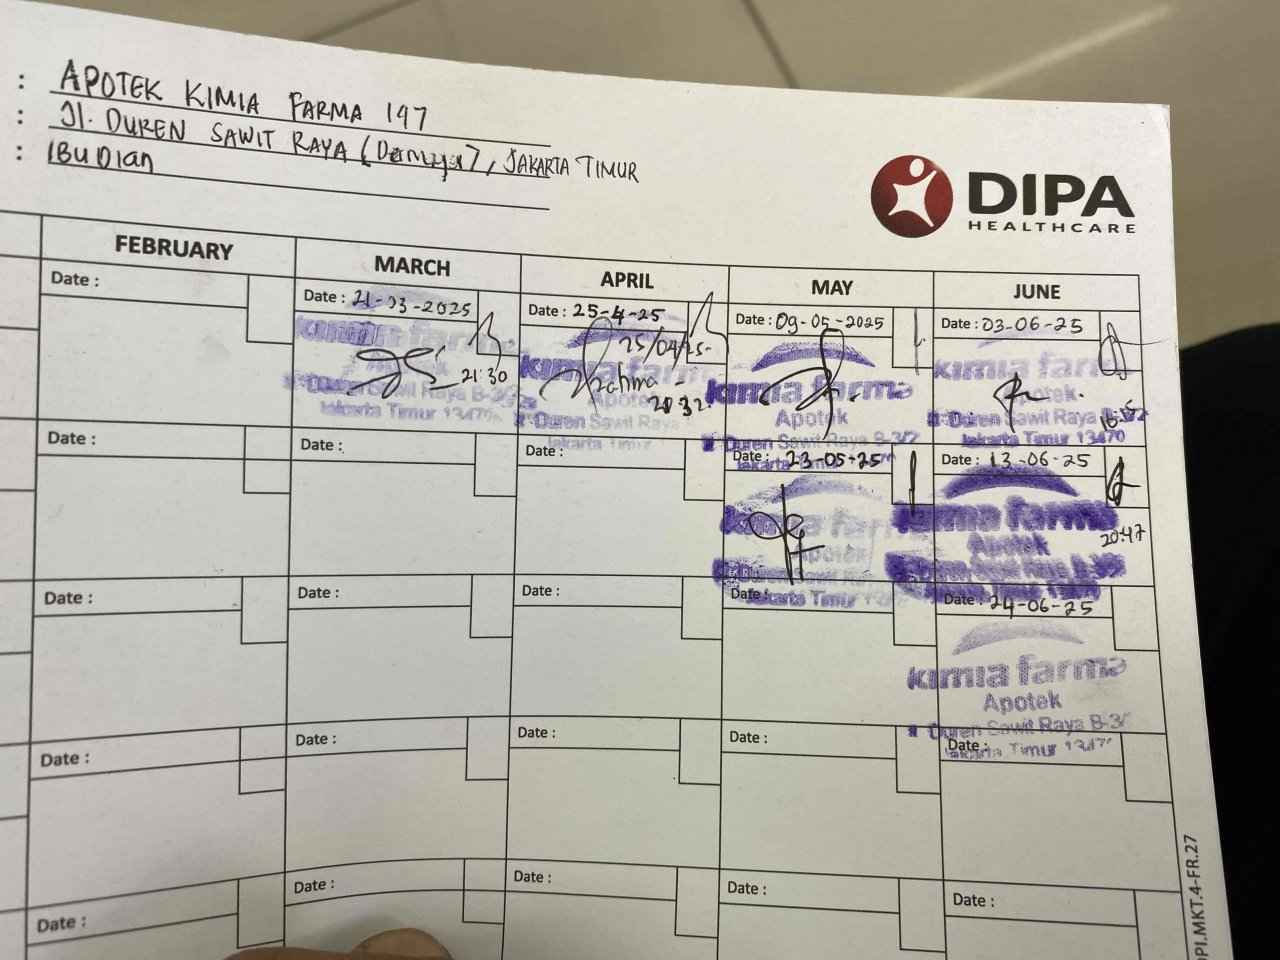 : APOTEK KIMIA FARMA 197
: Jl. DUREN SAWIT RAYA, JAKARTA TIMUR
: IBU DIAN
DIPA
HEALTHCARE
FEBRUARY MARCH APRIL MAY JUNE
Date : Date : 21-03-2025 Date : 25-4-25 Date : 09-05-2025 Date : 03-06-25
25/04/25-
kimia farma kimia farma kimia farma kimia farma
21:30 Rahma - Apotek Apotek
20:32
Duren Sawit Raya B-3/2 Duren Sawit Raya Duren Sawit Raya B-3/2 Duren Sawit Raya B-3/2
Jakarta Timur 13470 Jakarta Timur Jakarta Timur Jakarta Timur 13470
Date : Date : Date : Date : 23-05-25 Date : 13-06-25
kimia farma kimia farma
Apotek Apotek 20:47
Duren Sawit Raya Duren Sawit Raya B-3/2
Jakarta Timur Jakarta Timur
Date : Date : Date : Date : Date : 24-06-25
kimia farma
Apotek
Duren Sawit Raya B-3/
Jakarta Timur 1347
Date : Date : Date : Date : Date :
Date : Date : Date : Date : Date :
DPI.MKT.4-FR.27